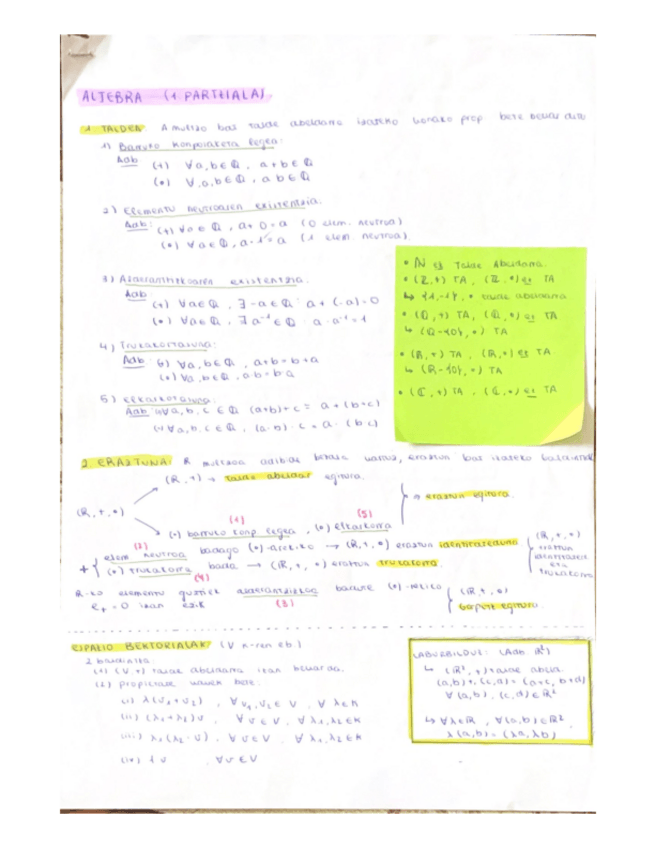 ALJEBRA (1 PARTZIALA)
1. TALDEA: A multzo bat talde abeldarra izateko honako prop. bete behar ditu
1) Barruko konposaketa legea:
Adb (+) ∀a,b∈ℚ, a+b∈ℚ
(•) ∀a,b∈ℚ, ab∈ℚ
2) Elementu neutroaren existentzia.
Adb: (+) ∀a∈ℚ, a+0=a (0 elem. neutroa)
(•) ∀a∈ℚ, a·1=a (1 elem. neutroa).
3) Alderantzizkoaren existentzia:
Adb (+) ∀a∈ℚ, ∃-a∈ℚ: a+(-a)=0
(•) ∀a∈ℚ, ∃a⁻¹∈ℚ: a·a⁻¹=1
4) Trukakortasuna:
Adb: (+) ∀a,b∈ℚ, a+b=b+a
(•) ∀a,b∈ℚ, ab=ba
5) Elkakortasuna:
Adb: (+) ∀a,b,c∈ℚ (a+b)+c = a+(b+c)
(•) ∀a,b,c∈ℚ, (a·b)·c = a·(b·c)
• ℕ ez Talde Abeldarra.
• (ℤ,+) TA, (ℤ,•) ez TA
↳ {1,-1}, • talde abeldarra
• (ℚ,+) TA, (ℚ,•) ez TA
↳ (ℚ-{0},•) TA
• (ℝ,+) TA, (ℝ,•) ez TA
↳ (ℝ-{0},•) TA
• (ℂ,+) TA, (ℂ,•) ez TA
2. ERAZTUNA: R multzoa adibide bezala hartuz, eraztun bat izateko baldintzak
(R,+) → talde abeldar egitura.
(R,+,•)
(1) (5)
(•) barruko konp legea, (•) elkakorra
→ eraztun egitura.
(2)
+ { elem neutroa badago (•)-arekiko → (R,+,•) eraztun identitateduna
(•) trukakorra bada → (R,+,•) eraztun trukakorra.
(4)
(R,+,•)
eraztun
identitatedun
eta
trukakorra
R-ko elementu guztiek alderantzizkoa badute (•)-rekiko
e₊=0 izan ezik (3)
(R,+,•)
Gorputz egitura.
ESPAZIO BEKTORIALAK (V K-ren eb.)
2 baldintza
(1) (V,+) talde abeldarra izan behar da.
(2) propietate hauek bete:
(i) λ(v₁+v₂), ∀v₁,v₂∈V, ∀λ∈K
(ii) (λ₁+λ₂)v, ∀v∈V, ∀λ₁,λ₂∈K
(iii) λ₁(λ₂·v), ∀v∈V, ∀λ₁,λ₂∈K
(iv) 1v, ∀v∈V
LABURBILDUZ: (Adb ℝ²)
↳ (ℝ²,+) talde abeld.
(a,b)+(c,d)=(a+c, b+d)
∀(a,b),(c,d)∈ℝ²
↳ ∀λ∈ℝ, ∀(a,b)∈ℝ²
λ(a,b)=(λa,λb)